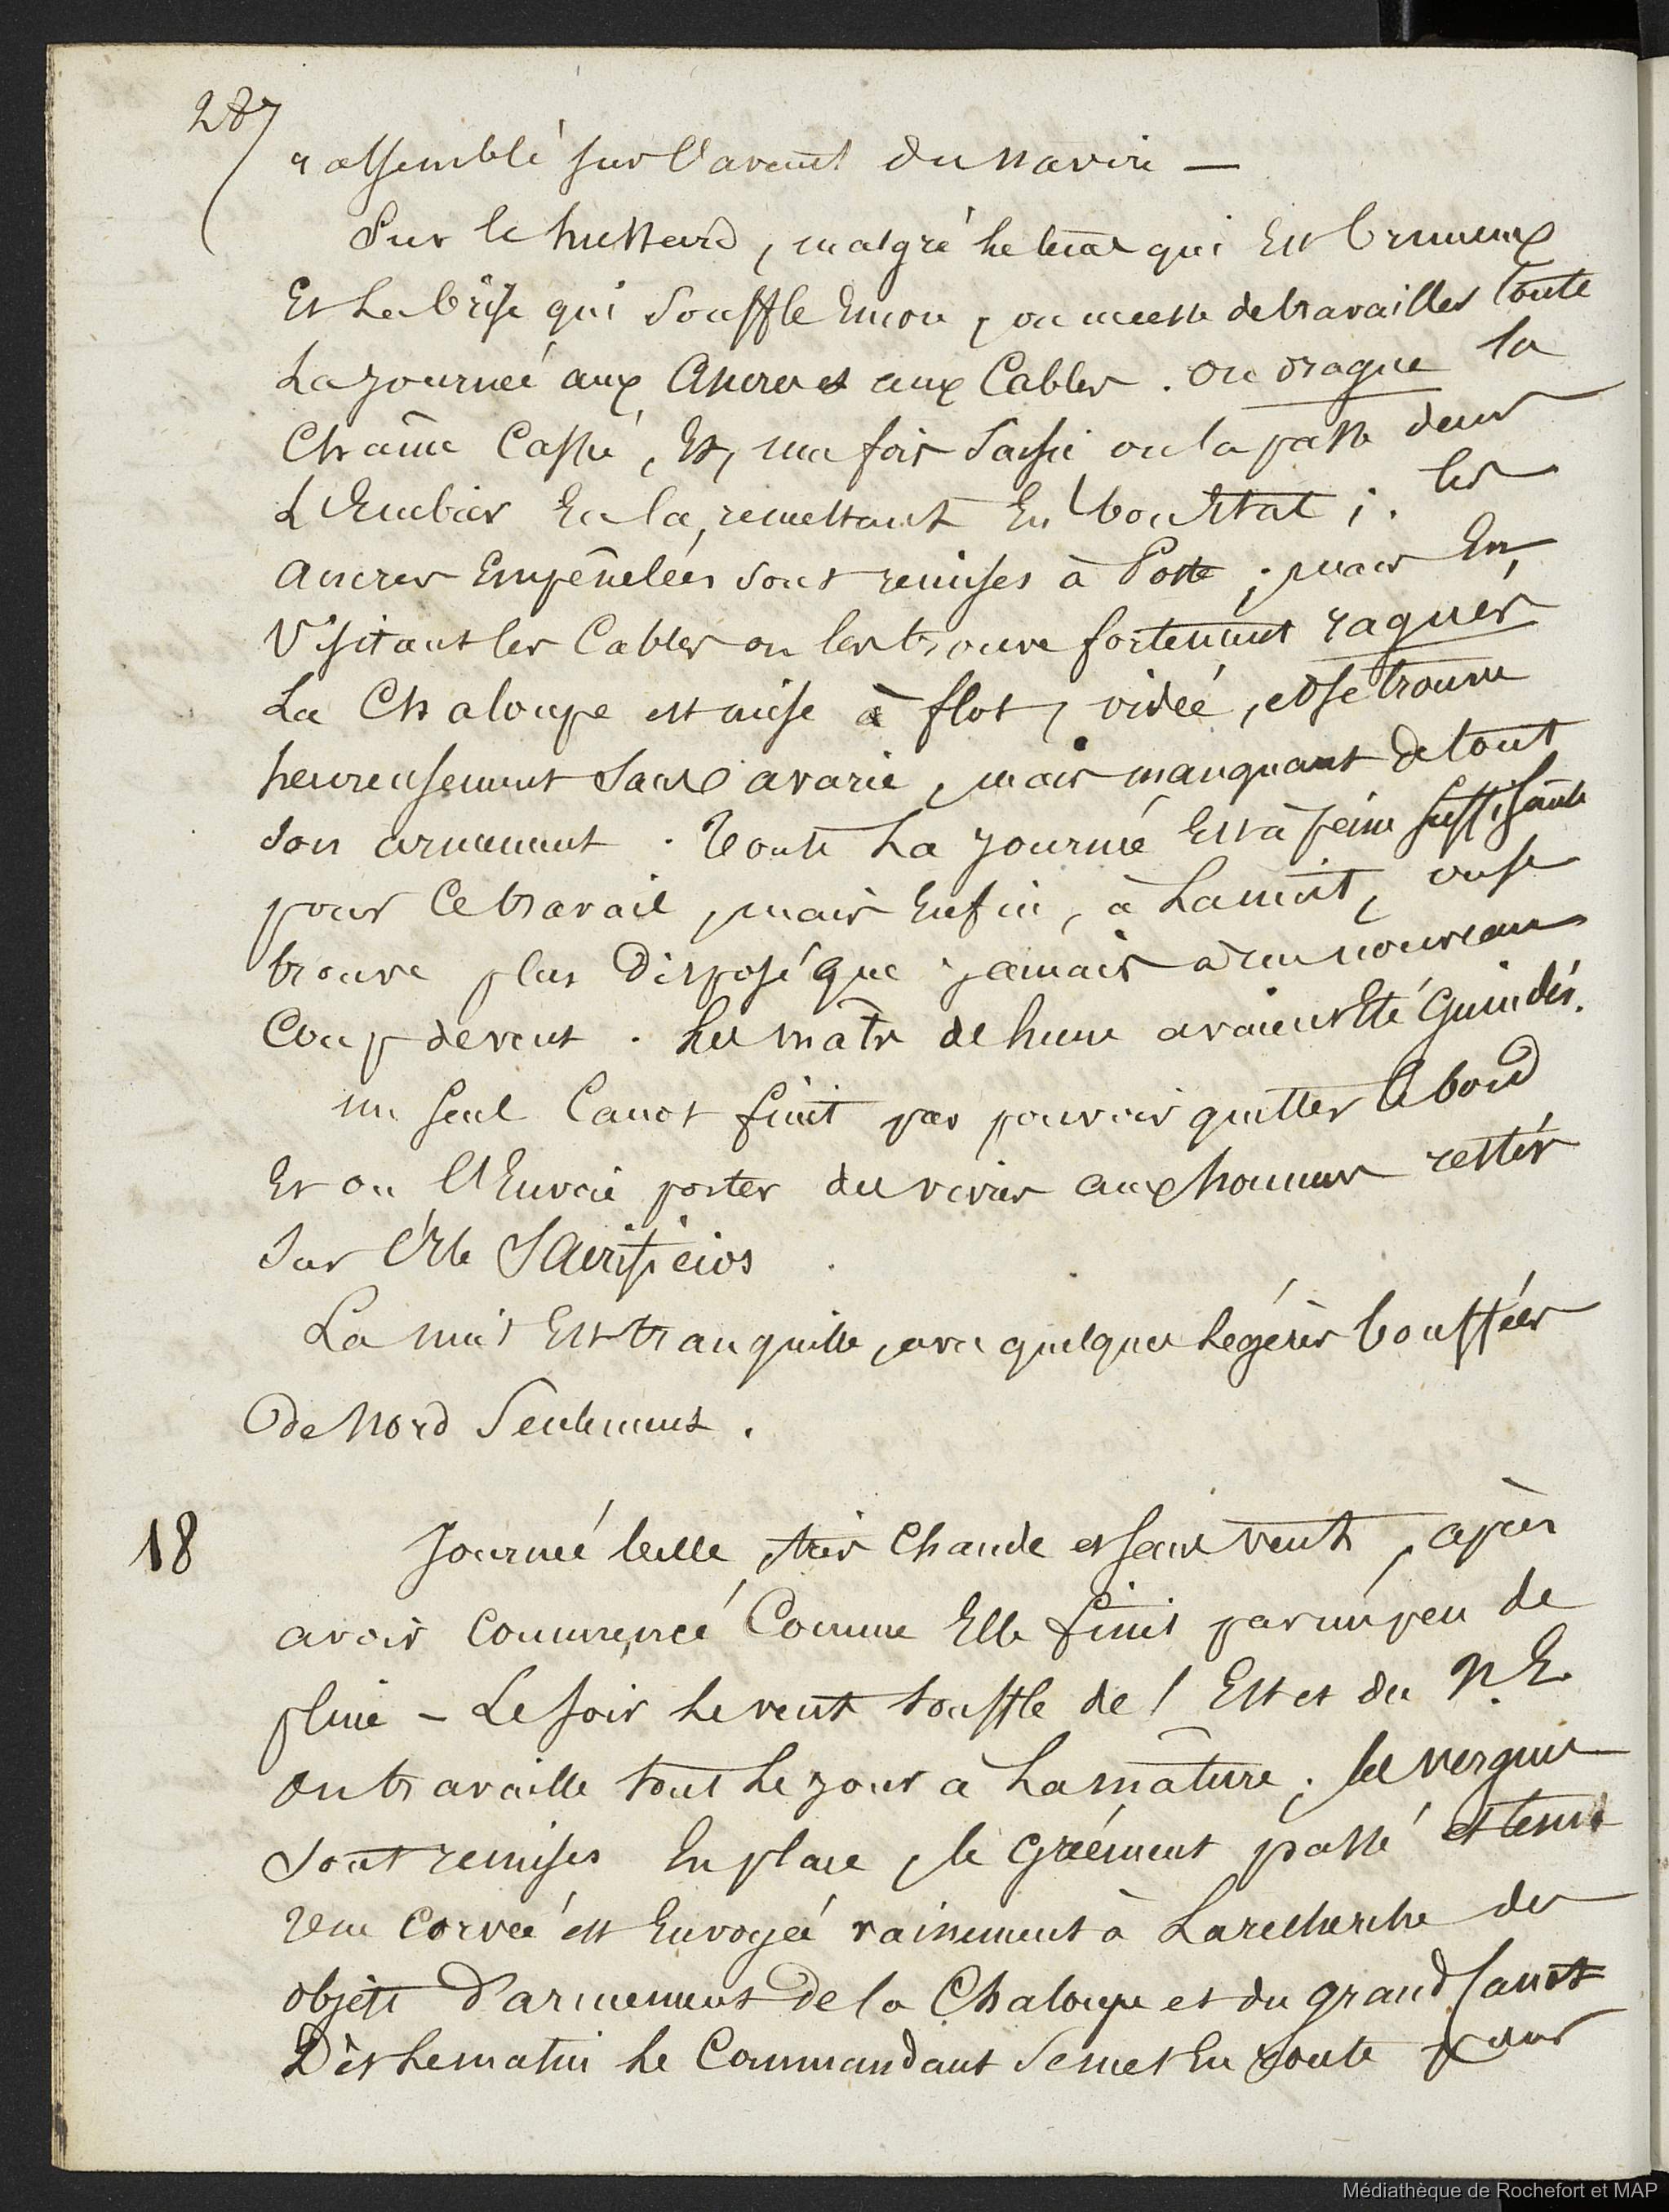 287
rassemblé sur l'avant du navire —
Sur le hussard, malgré le tems qui Est brumeux
Et La brise qui Souffle Encore, on ne cesse de travailler toute
La journée aux Ancres et aux Cables. On drague la
Chaîne Cassée, Et, une fois Saisie on la passe dans
L'Ecubier En la remettant En bon Etat ; les
ancres Empênelées sont remises à Poste ; mais En
Visitant les Cables on les trouve fortement ragués
La Chaloupe est mise à flot, vidée, et se trouve
heureusement Sans avarie, mais manquant de tout
Son armement. Toute La journée Est à peine suffisante
pour Ce travail, mais Enfin, à La nuit, on se
trouve plus Disposé que jamais à un nouveau
Coup de vent. Les mâts de hune avaient Eté Guindés.
un seul Canot finit par pouvoir quitter le bord
Et on l'Envoie porter des vivres aux hommes restés
Sur l'Ile SAcrificios
La nuit Est tranquille, avec quelques Légères bouffées
de Nord Seulement.
18 Journée belle, très Chaude et sans vent, après
avoir commencé Comme Elle finit par un peu de
pluie – Le soir le vent souffle de l'Est et du N.E.
On travaille tout Le jour à La mâture ; les vergues
Sont remises En place, le Gréement passé et tenu
Une Corvée est Envoyée vainement à La recherche des
objets D'armement De la Chaloupe et du grand Canot
Dès Le matin le Commandant Se met En route pour
Médiathèque de Rochefort et MAP